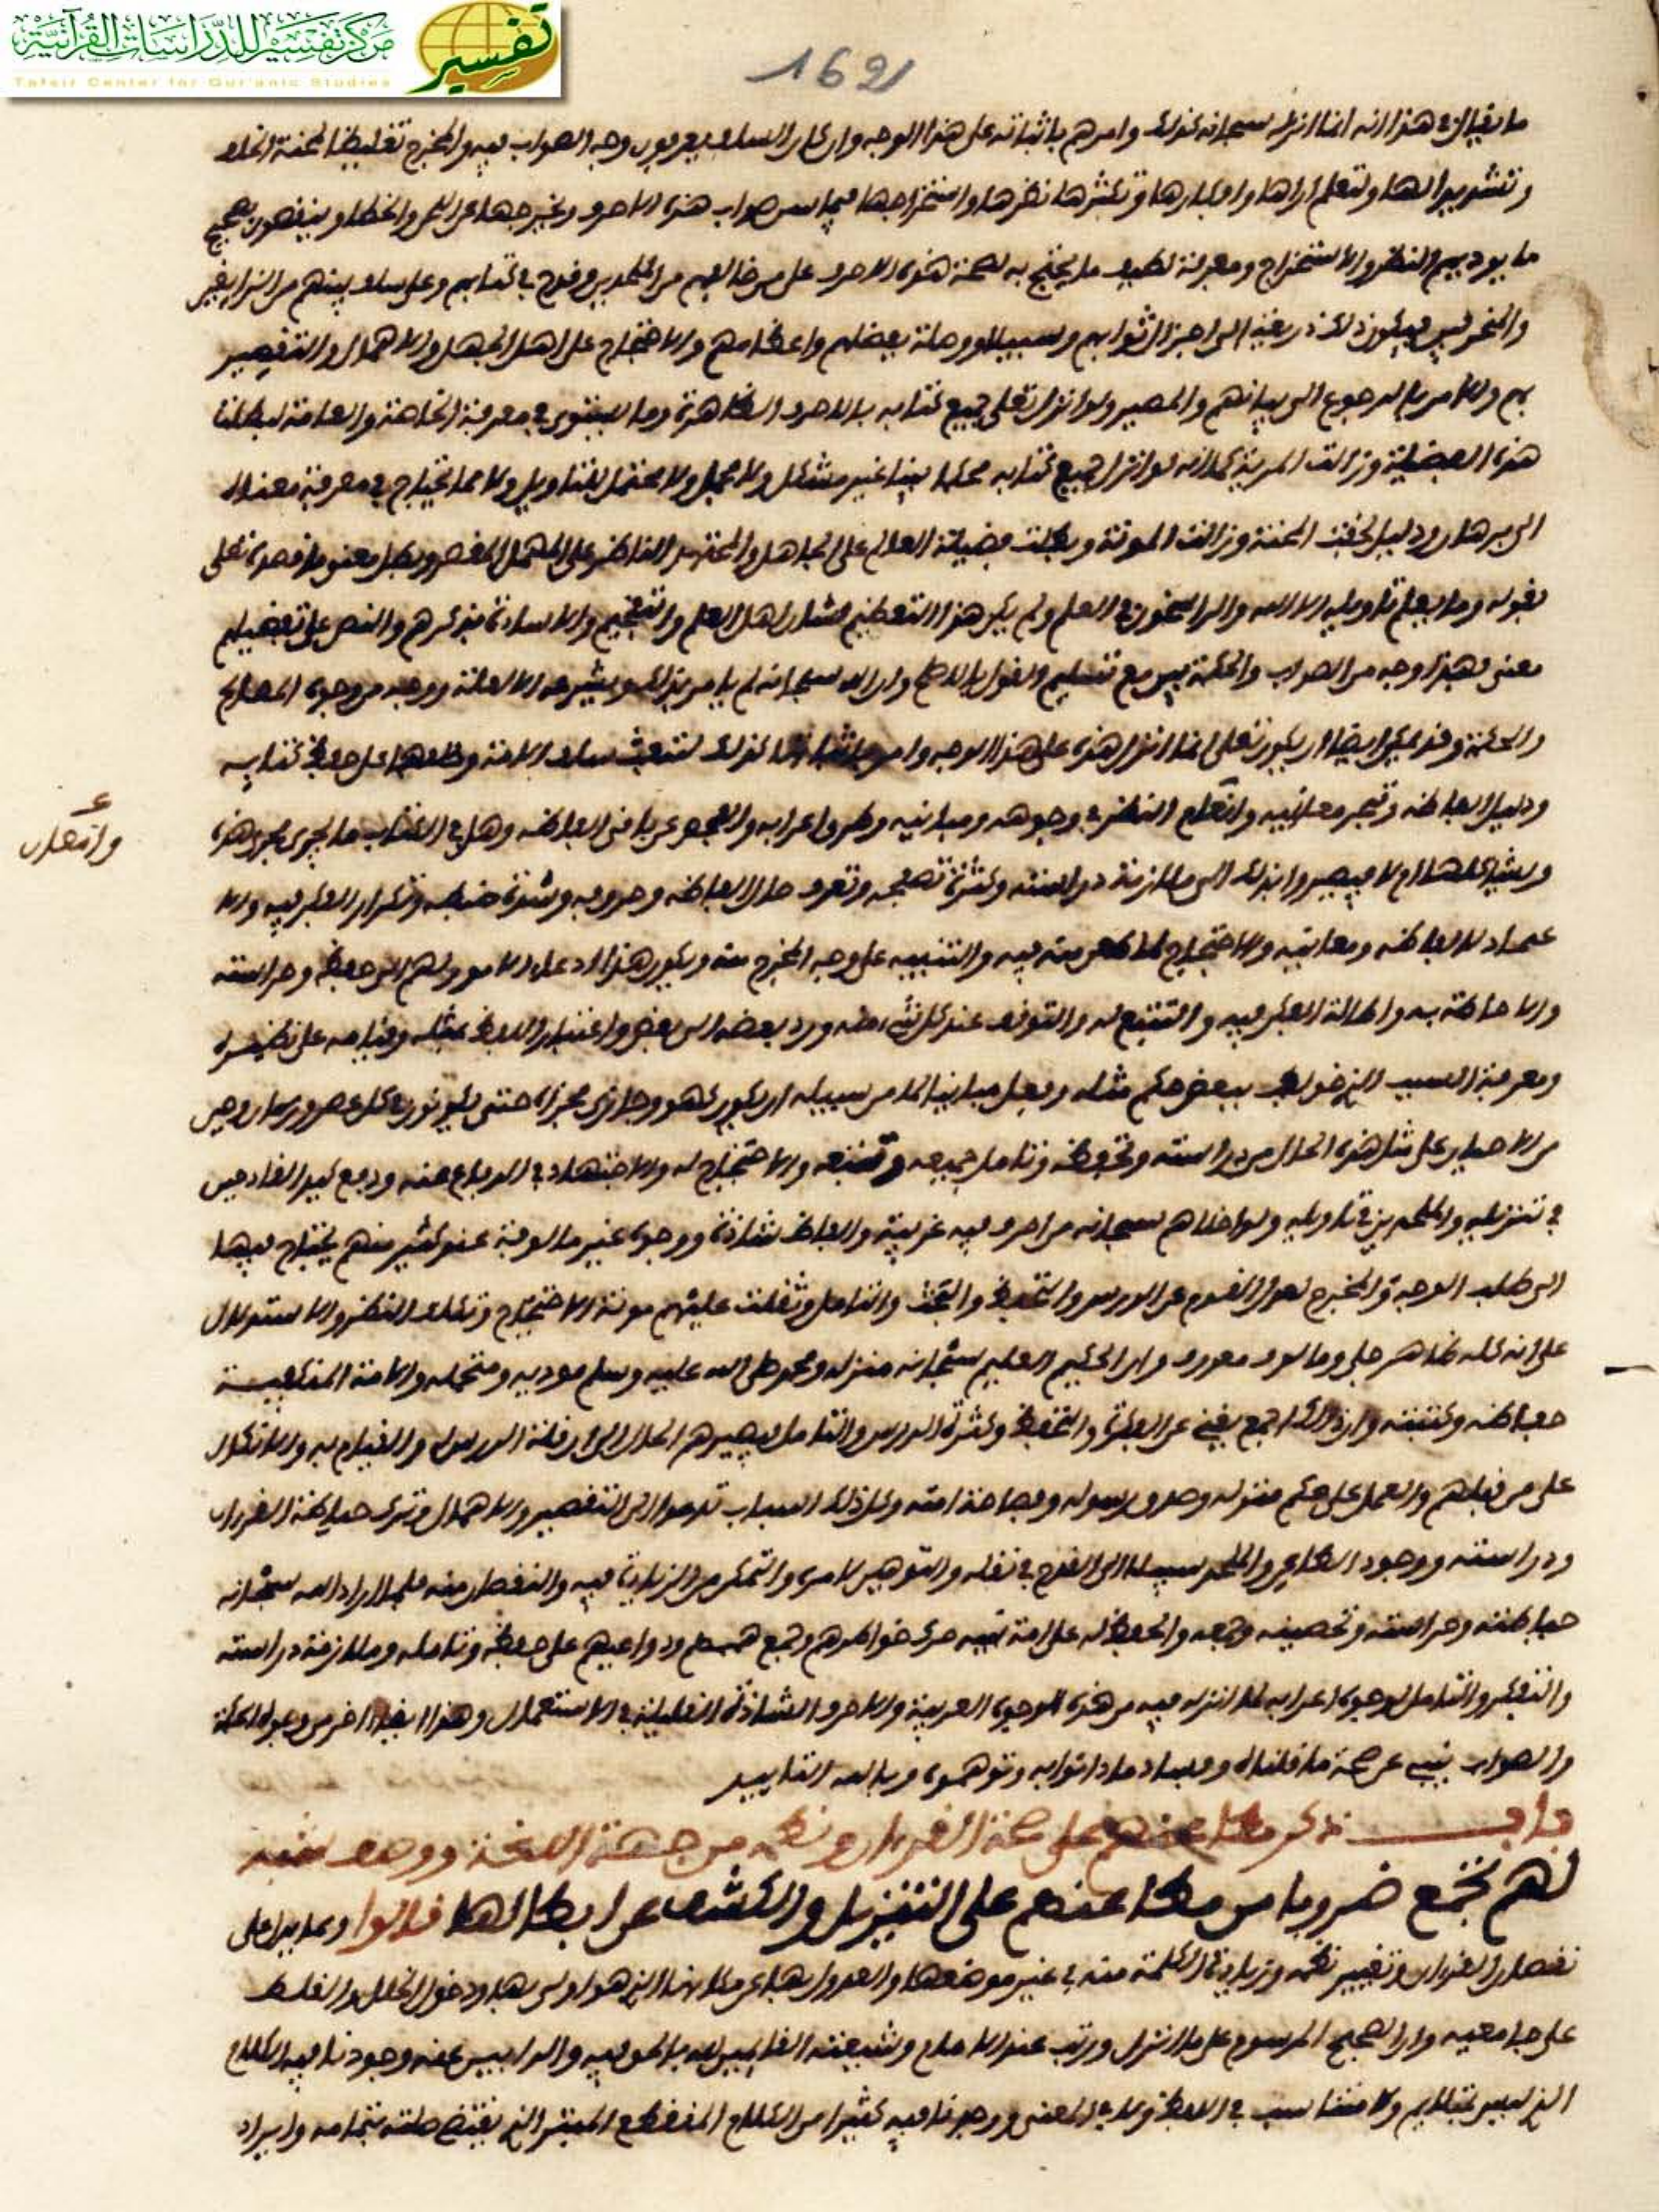 مركز تفسير للدراسات القرآنية
Tafsir Center for Qur'anic Studies
تفسير
1621
ما يقال في هذا انه انما انزله سبحانه كذلك وامرهم باثباته على هذا الوجه وان كان السلف يعرفون وجه الصواب فيه والمخرج تغليظا لمحنة
وتشديدا لها ولتعلم اراها وافكارها وتكثرها نظرها واستخراجها صواب هذه الاحرف وتخريجها عن اللحن والخطا
ما يوديهم النظر والاستخراج ومعرفة لطيف ما يحتج به لصحة هذه الاحرف على من خالفهم من الملحدين وقدح في كتابهم وعلى سلف بينهم من
فيكون ذلك ذريعة الى اجزال ثوابهم وسبيلا وصلة بفضلهم واعظامهم والاحتجاج على اهل الجهل والاهمال والتقصير
بهم والامر بالرجوع الى بيانهم والمصير ولو انزل تعلى جميع كتابه بالاحرف الظاهرة وما يستوى في معرفة الخاصة والعامة لبطلت
هذه الفضيلة وزالت المزية كما انه لو انزل جميع كتابه محكما بينا غير مشكل ولا مجمل ولا محتمل للتاويل ولا مما يحتاج في معرفة معناه
الى برهان ودليل لخفت المحنة وزالت المونة وبطلت فضيلة العالم على الجاهل والمجتهد الناظر على المهمل المقصر وبطل معنى ما قصده تعلى
بقوله وما يعلم تاويله الا الله والراسخون في العلم ولم يكن هذا التعظيم لشان اهل العلم والتفخيم والاشادة بذكرهم والنص على تفضيلهم
معنى فهذا وجه من الصواب والحكمة بين مع تسليم القول وان الله سبحانه لم يامر بذلك ويشرعه الا لعلة ووجه من وجوه المصالح
والحكمة وقد يمكن ايضا ان يكون تعلى انما انزل هذه على هذا الوجه وامر باثباتها كذلك لتبعث سلف الامة وخلفها على حفظ كتابه
ودليل الفاظه وتبحر معانيه وانعام النظر في وجوهه ومبانيه وطرق اعرابه والفحص عن باقي الفاظه وهل في الكتاب ما يجري مجرى هذه
وانعام
ويشاكلها ام لا فيصيروا بذلك الى ملازمة دراسته وكثرة تصفحه وتعرف حال الفاظه وحروفه وشدة ضبطه وتكرار الفكر فيه والا
عماد لالفاظه ومعانيه والاحتجاج لما طعن به فيه والتنبيه على وجه المخرج منه ويكون هذا ادعا الامور لهم الى حفظه وحراسته
والاحاطة به واطالة الفكر فيه والتتبع له والتوقف عند كل شيء منه ورد بعضه الى بعض واعتبار اللفظ بمثله وقياسه على نظيره
ومعرفة السبب الذي خولف ببعض حكم مثله وجعل مباينا لما من سبيله ان يكون كهو وجاري مجراه حتى يكونون في كل عصر وزمان وحين
من الاحيان على مثل هذه الحال من دراسته وتحفظه وتامل جميعه وتتبعه والاحتجاج له والاجتهاد في الدفاع عنه ودفع كيد القادحين
في تنزيله والملحدين في تاويله ولو اخلاهم سبحانه من احرف فيه غريبة والفاظ شاذة ووجوه غير مالوفة عند كثير منهم يحتاج فيها
الى طلب الوجه والمخرج لعدل القوم عن الدرس والتحفظ والبحث والتامل وثقلت عليهم مونة الاحتجاج وتكلف النظر والاستدلال
على انه كله ظاهر جلي ومالوف معروف وان الحكيم العليم سبحانه منزله ومحمد صلى الله عليه وسلم موديه ومتحمله والامة
حفاظه وكتبته وان ذلك اجمع يغني عن الفكرة والتحفظ وكثرة الدرس والتامل فيصيرهم الحال الى قلة الدرس والقيام به والاتكال
على من قبلهم والعمل على حكم منزله وصدق رسوله وفصاحة امته وكل ذلك اسباب تدعوا الى التقصير والاهمال وترك حياطة القران
ودراسته ووجود الطاعن والملحد سبيلا الى القدح في نقله والتوهين لامره والتمكن من الزيادة فيه والنقصان منه فلما اراد الله سبحانه
حياطته وحراسته وتحصينه وجمعه والحفظ له على امة نبيه حرك خواطرهم وجمع هممهم ودواعيهم على حفظه وتامله وملازمة دراسته
والتفكر والتامل لوجوه اعرابه لما انزله فيه من هذه الوجوه العربية والاحرف الشاذة القليلة في الاستعمال وهذا ايضا اخر من وجوه الحكمة
والصواب ينبي عن صحة ما قلناه وفساد ما اتوا به وتوهموه وبالله التاييد
باب ذكر مطاعنهم على صحة القران ونظمه من جهة اللغة ووصف شبه
لهم تجمع ضروبا من مطاعنهم على التنزيل والكشف عن ابطالها قالوا ومما يدل على
نقصان القران وتغيير نظمه وزيادة الكلمة منه في غير موضعها والعدول بها عن مكانها الذي هو اولى بها ودخول الخلل والغلط
على جامعيه وان الصحيح المرسوم على ما انزل ورتب عند الامام وشيعته القايمين لله بالحق فيه والذابين عنه وجودنا فيه الكلام
الذي ليس بمتلايم ولا متناسب في اللفظ ولا في المعنى ووجودنا فيه كثيرا من الكلام المنقطع المبتر الذي يقتضي صلته بتمامه وايراد